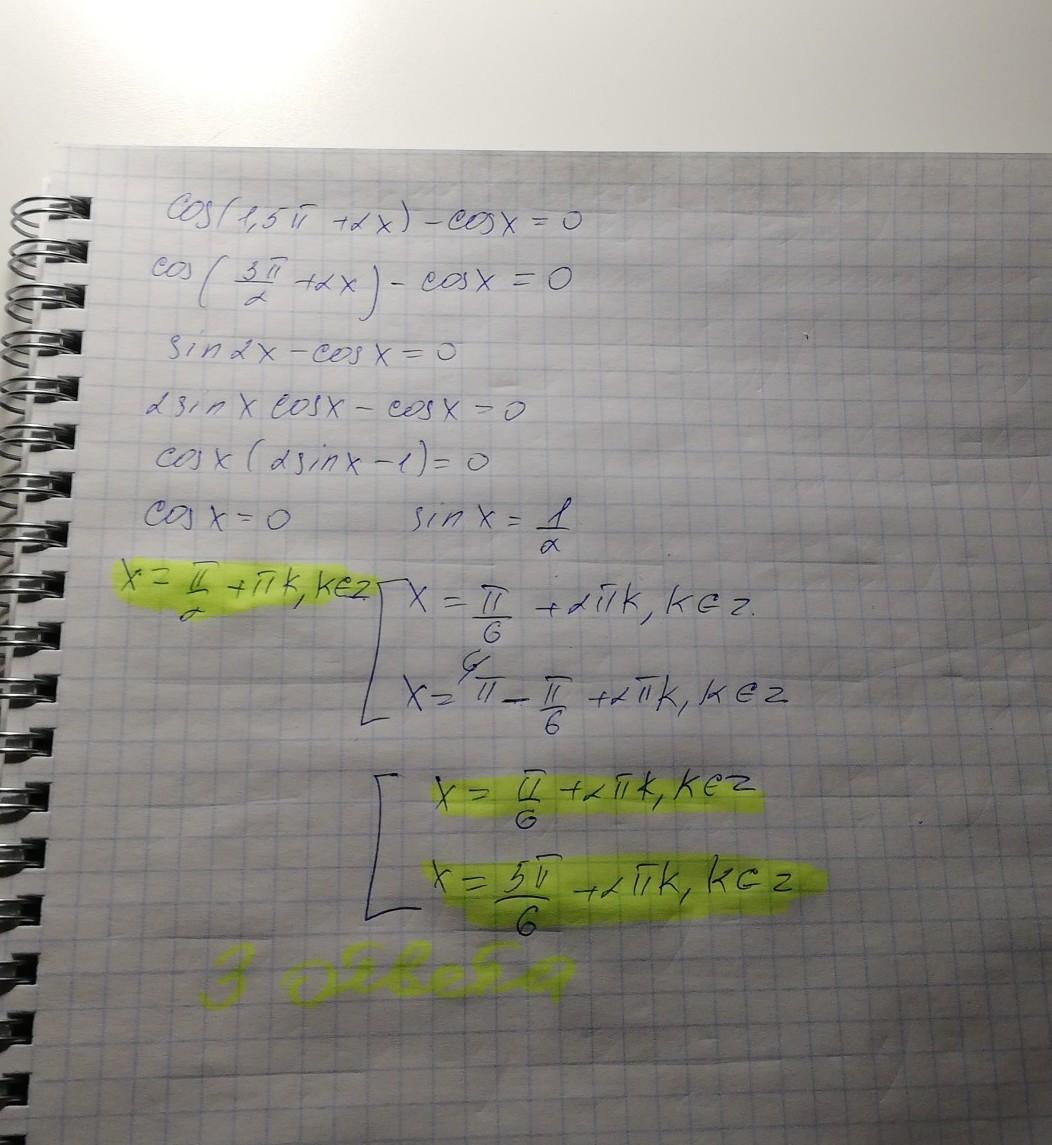 cos(1,5π + 2x) - cosx = 0
cos(3π/2 + 2x) - cosx = 0
sin2x - cosx = 0
2sinx cosx - cosx = 0
cosx(2sinx - 1) = 0
cosx = 0 sinx = 1/2
x = π/2 + πk, k∈z [ x = π/6 + 2πk, k∈z.
x = π - π/6 + 2πk, k∈z
[ x = π/6 + 2πk, k∈z
x = 5π/6 + 2πk, k∈z
3 ответа